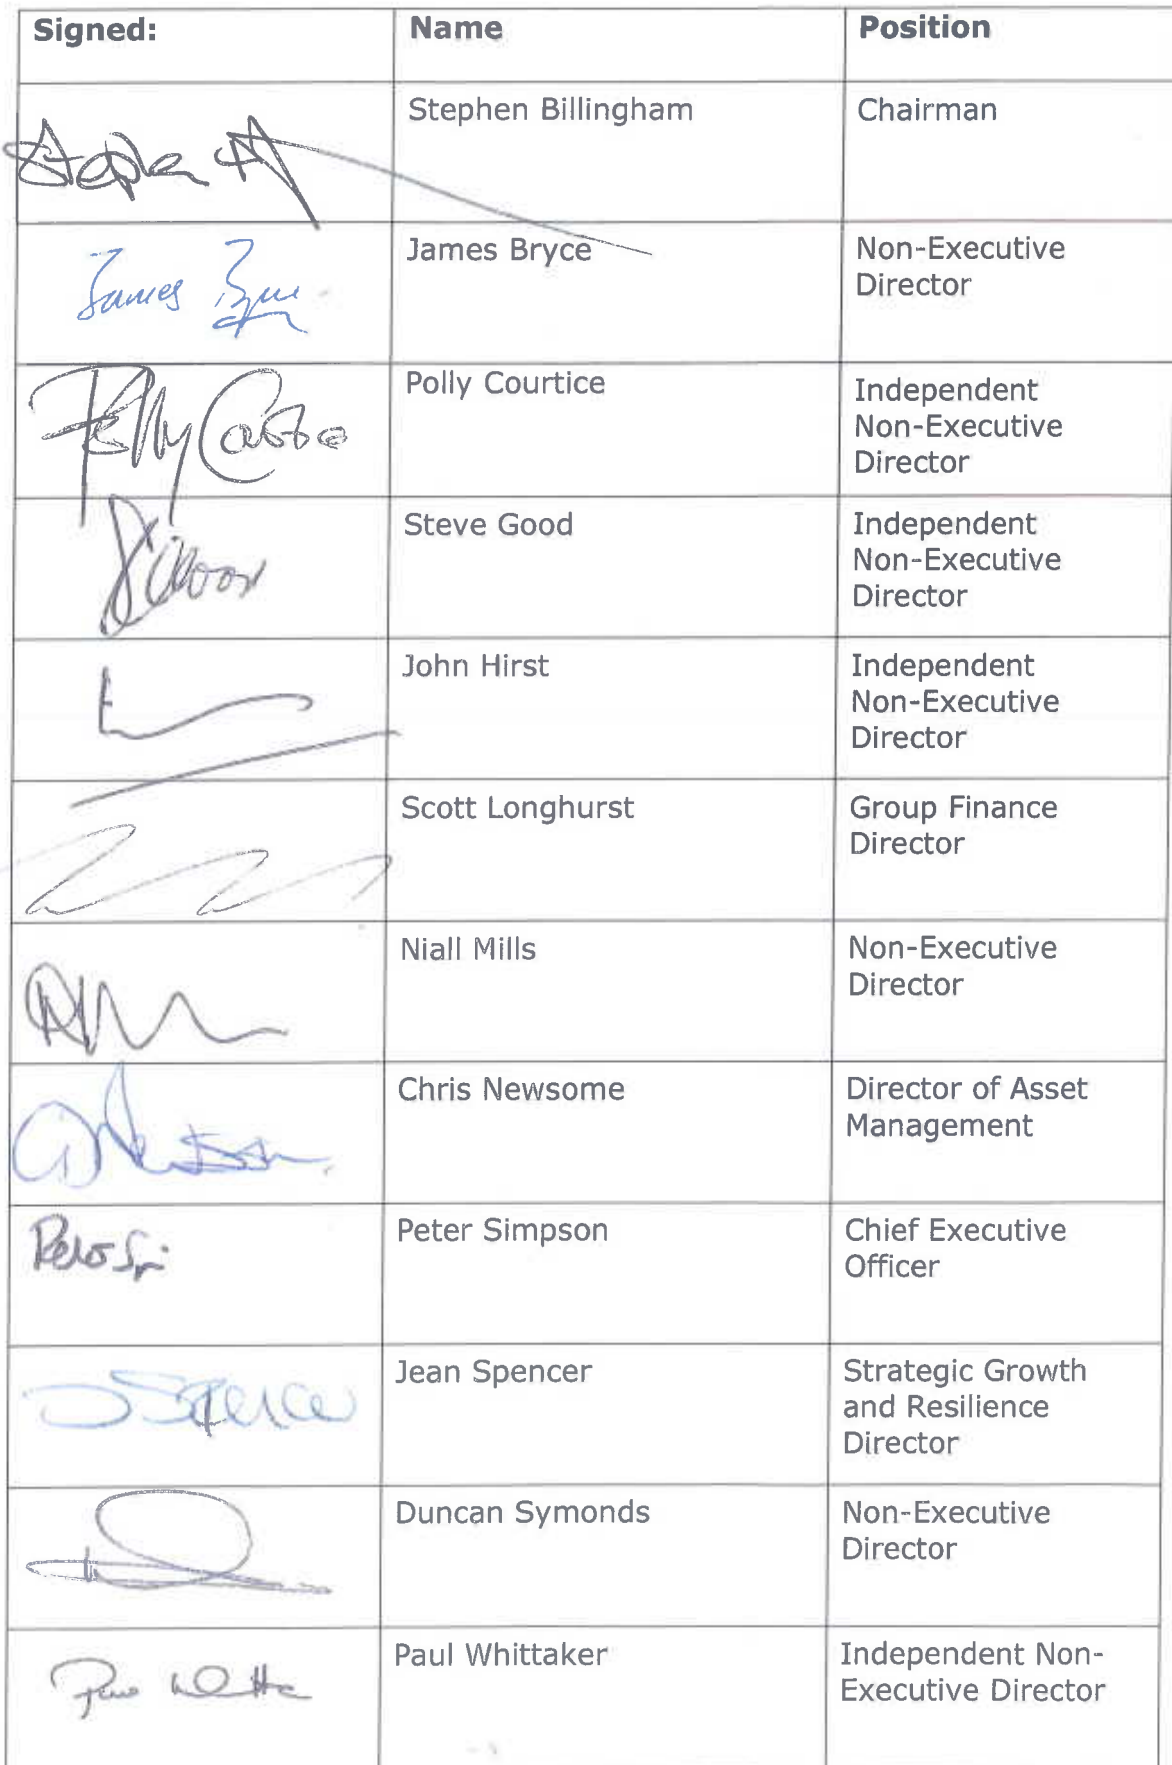 Signed: Name Position
Stephen Billingham Chairman
James Bryce Non-Executive
Director
James
Polly Courtice Independent
Non-Executive
Director
Polly
Steve Good Independent
Non-Executive
Director
John Hirst Independent
Non-Executive
Director
Scott Longhurst Group Finance
Director
Niall Mills Non-Executive
Director
Chris Newsome Director of Asset
Management
Peter Simpson Chief Executive
Officer
Jean Spencer Strategic Growth
and Resilience
Director
J Spencer
Duncan Symonds Non-Executive
Director
Paul Whittaker Independent Non-
Executive Director